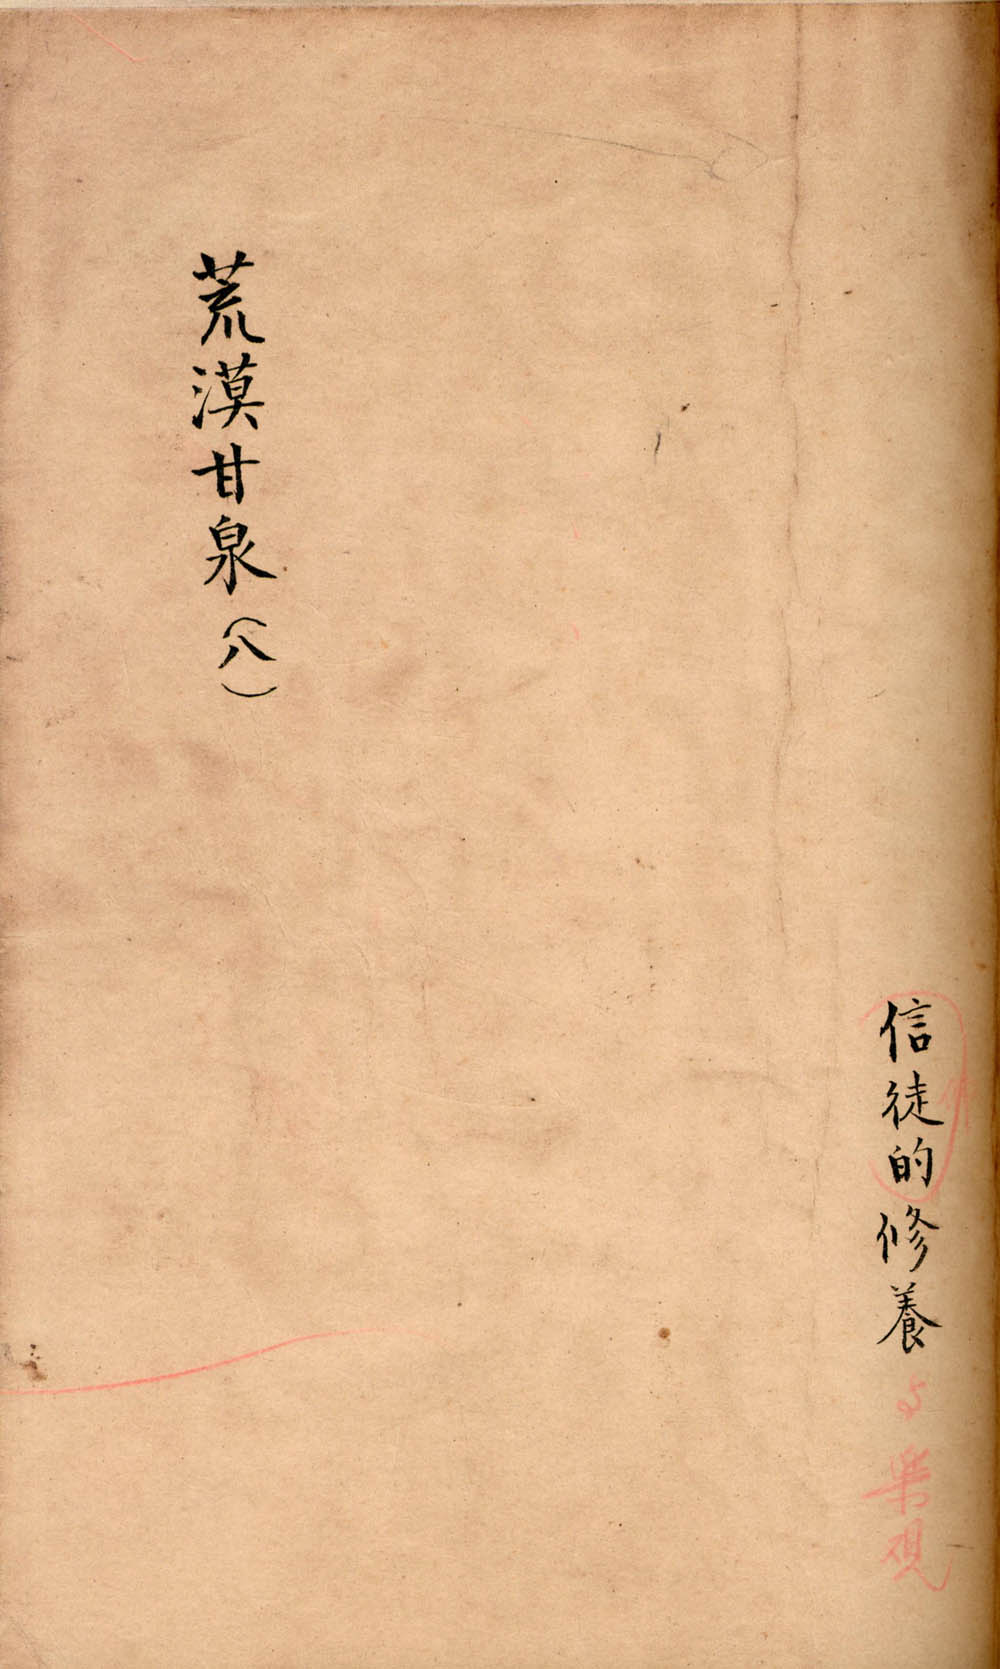 信徒的修養
与樂观
荒漠甘泉（八）